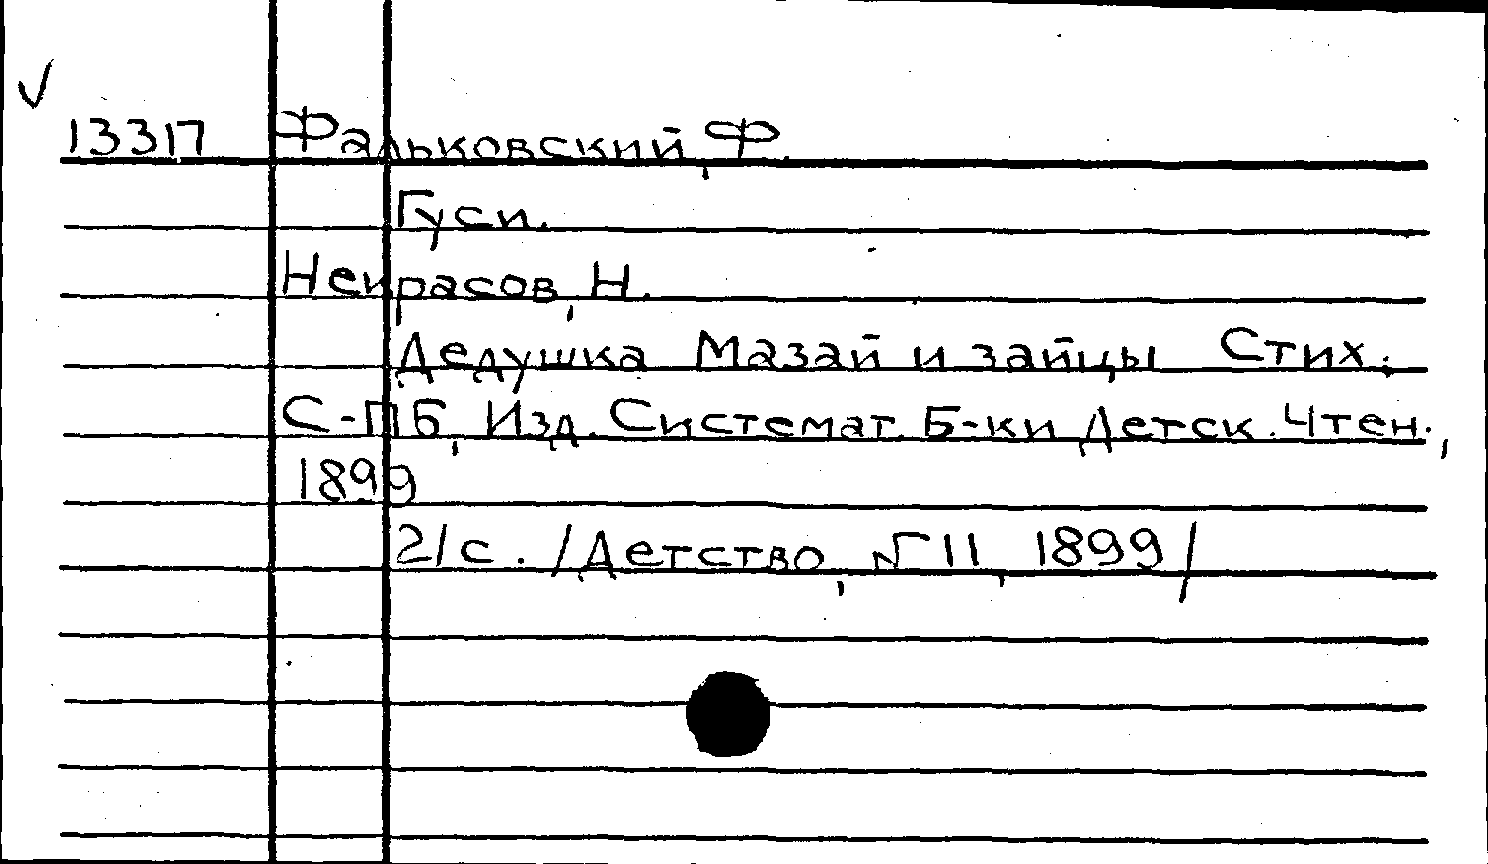 √
13317 Фальковский, Ф.
Гуси.
Некрасов, Н.
Дедушка Мазай и зайцы Стих.
С-ПБ, Изд. Системат. Б-ки Детск. Чтен.,
1899
21с. /Детство, №11, 1899/